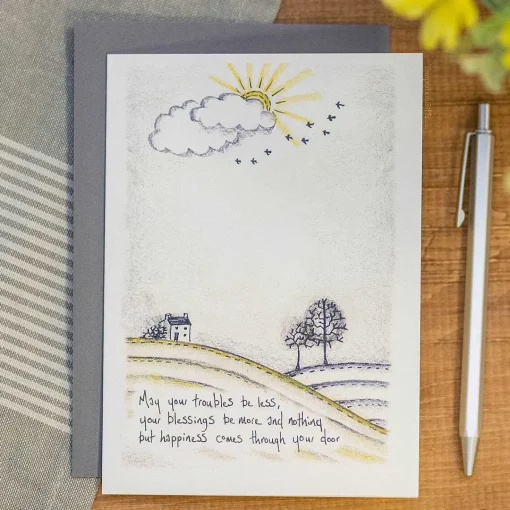 May your troubles be less,
your blessings be more and nothing
but happiness comes through your door